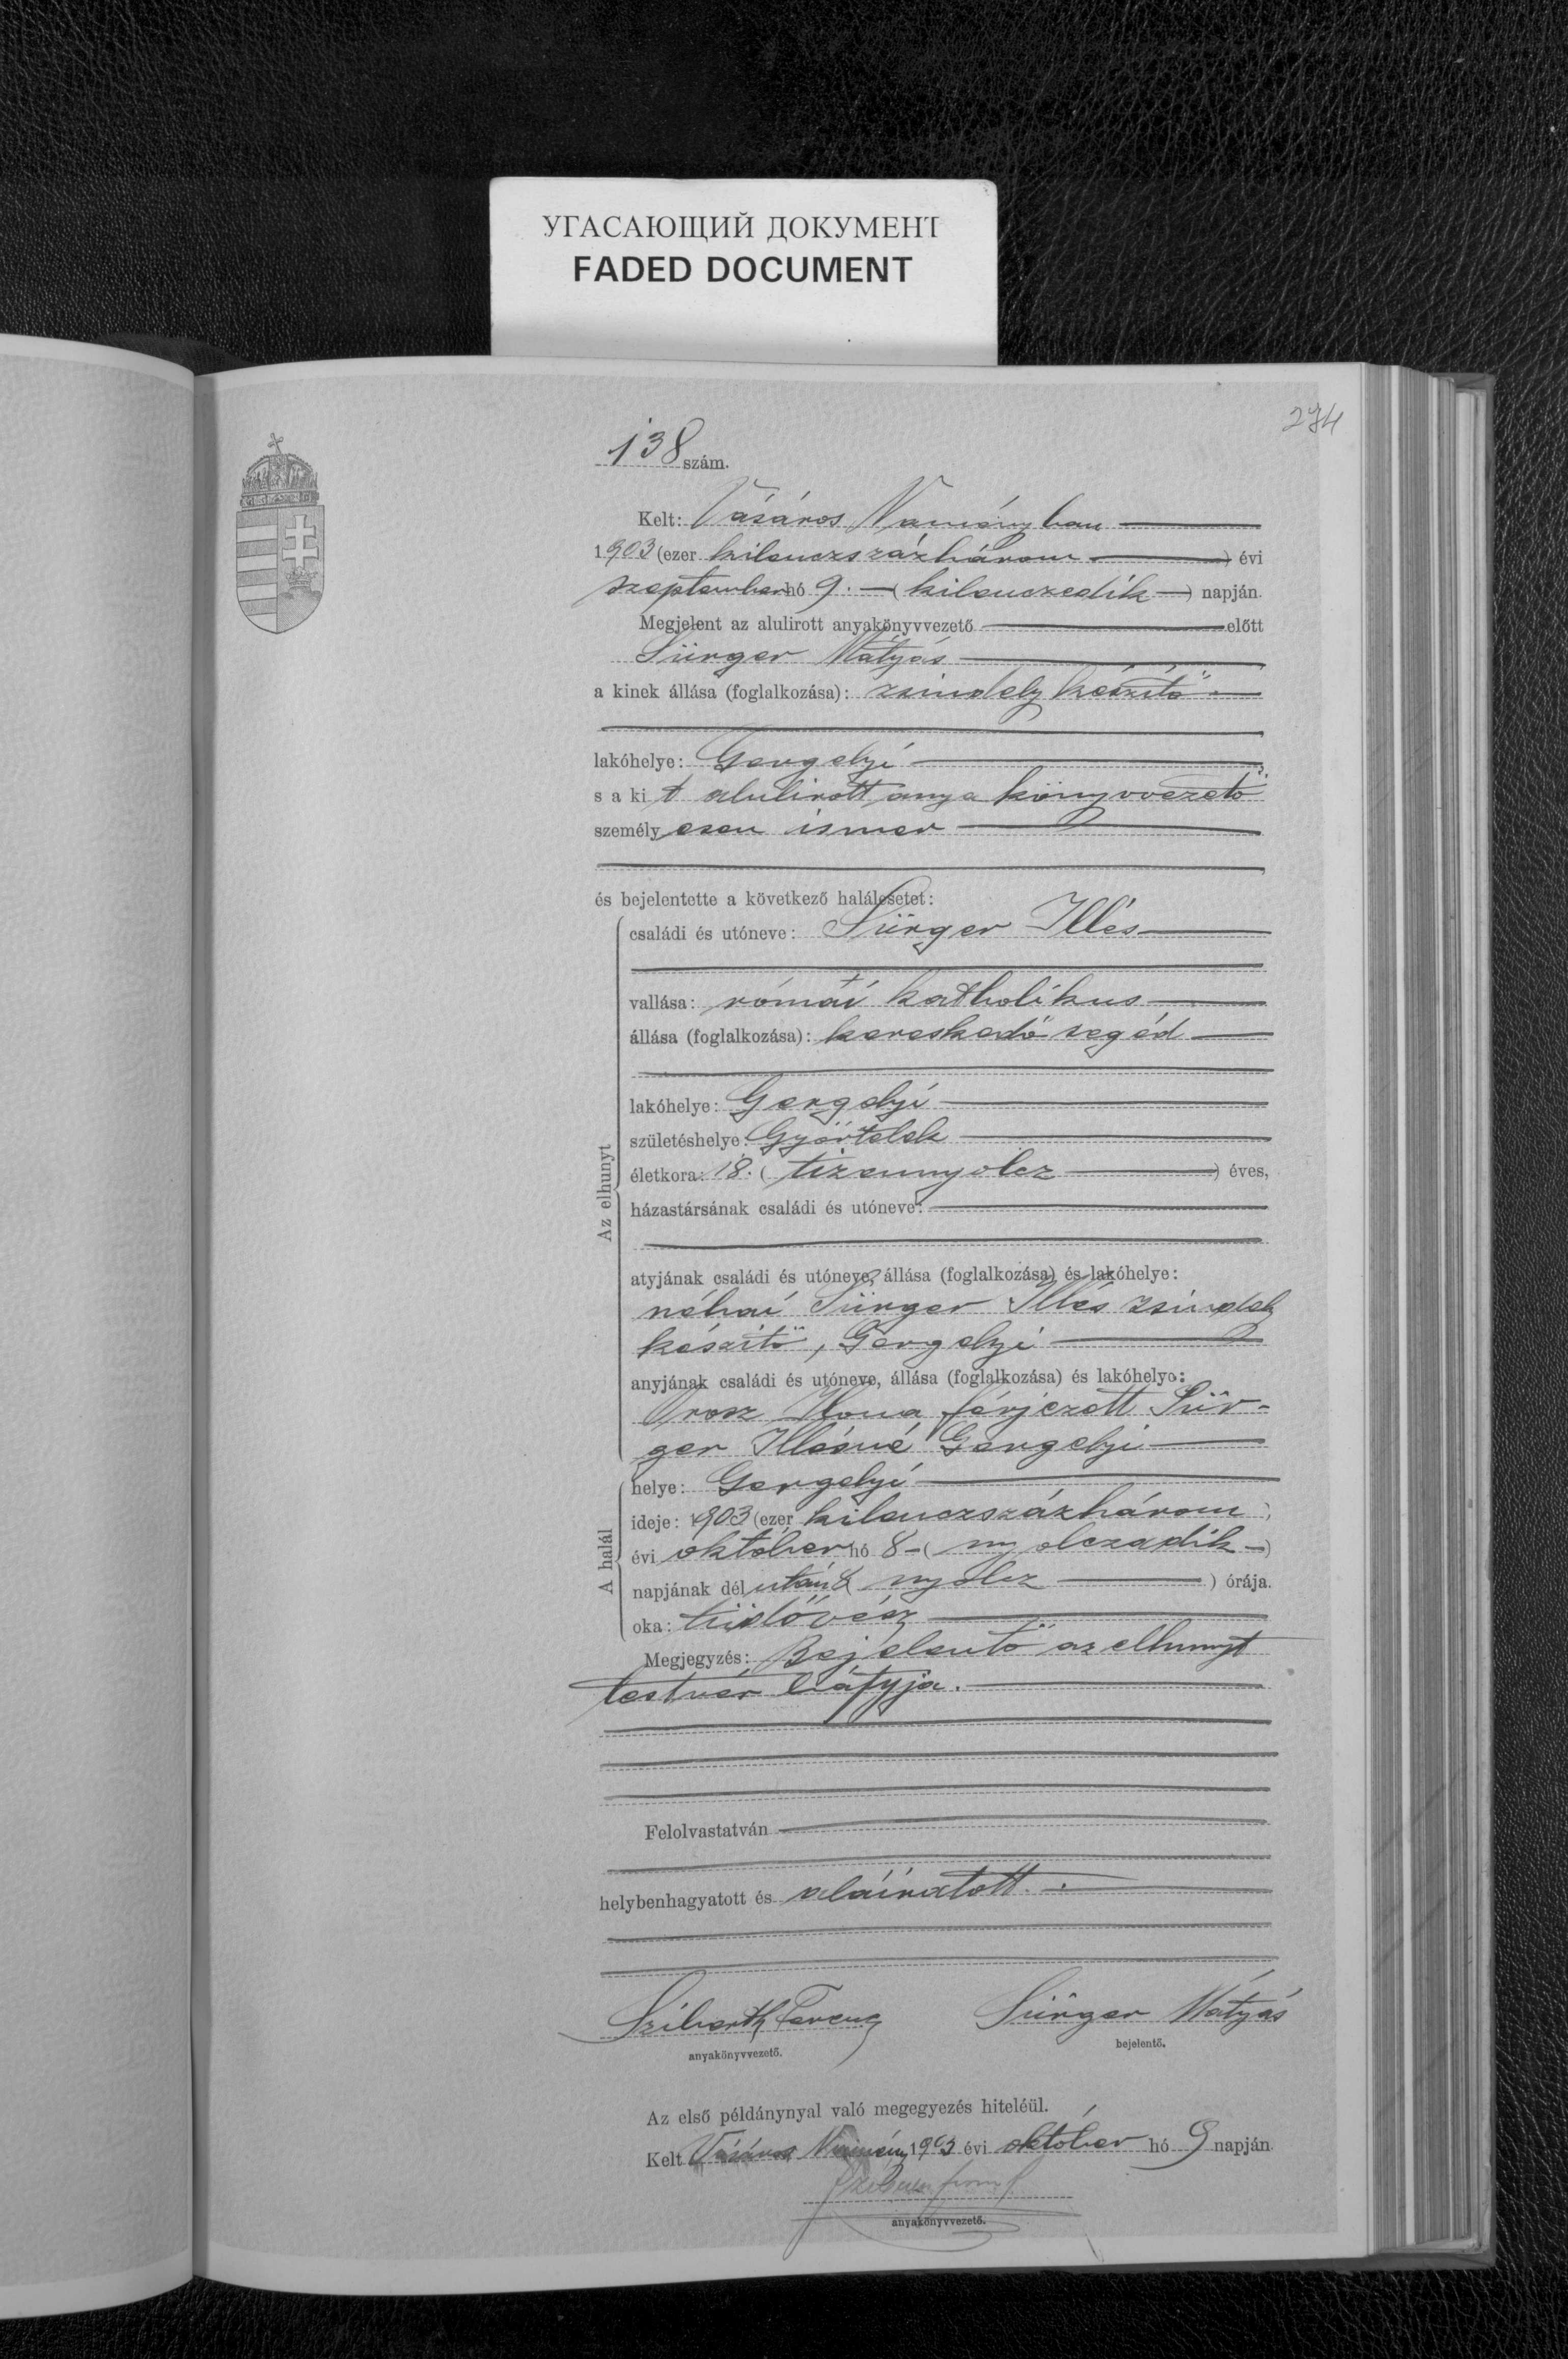 УГАСАЮЩИЙ ДОКУМЕНТ
FADED DOCUMENT
274
138 szám.
Kelt: Vásáros Naményban
1903 (ezer kilenczszázhárom) évi
szeptember hó 9. (kilenczedik) napján.
Megjelent az alulirott anyakönyvvezető előtt
Sürger Mátyás
a kinek állása (foglalkozása): zsindely készítő
lakóhelye: Gergelyi
s a kit alulirott anyakönyvvezető
személyesen ismer
és bejelentette a következő halálesetet:
Az elhunyt
családi és utóneve: Sürger Illés
vallása: római katholikus
állása (foglalkozása): kereskedő segéd
lakóhelye: Gergelyi
születéshelye: Győrtelek
életkora: 18. (tizennyolcz) éves,
házastársának családi és utóneve:
atyjának családi és utóneve, állása (foglalkozása) és lakóhelye:
néhai Sürger Illés zsindely
készítő, Gergelyi
anyjának családi és utóneve, állása (foglalkozása) és lakóhelye:
Orosz Ilona férjezett Sür-
ger Illésné Gergelyi
A halál
helye: Gergelyi
ideje: 1903 (ezer kilenczszázhárom)
évi október hó 8 (nyolczadik)
napjának délután 8 nyolcz) órája.
oka: tüdővész
Megjegyzés: Bejelentő az elhunyt
testvér bátyja.
Felolvastatván
helybenhagyatott és aláíratott.
Sziberth Ferencz Sürger Mátyás
anyakönyvvezető. bejelentő.
Az első példánynyal való megegyezés hiteléül.
Kelt Vásáros Namény 1903 évi október hó 9 napján.
anyakönyvvezető.